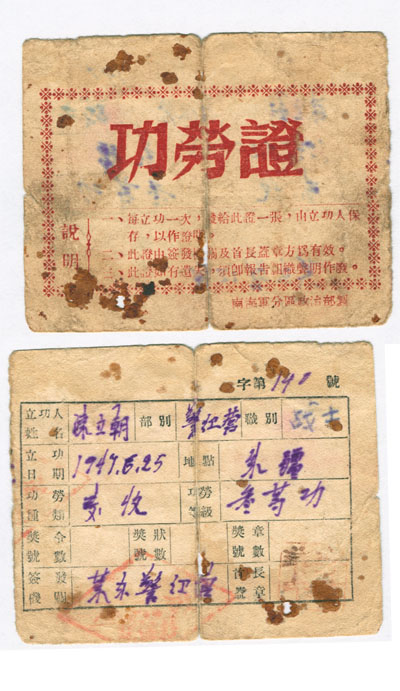 功勞證
說明
一、每立功一次，發給此證一張，由立功人保
存，以作證明。
二、此證由簽發機關及首長蓋章方爲有效。
三、此證如有遺失，須即報告組織聲明作廢。
軍分區政治部製
字第190號
立功人姓名 陳立朝 部別 警紅營 職別 战士
立功日期 1949.5.25 地點
功勞種類 功勞等級 叁等功
獎令號數 獎狀號數 獎章號數
簽發機關 警红營 首長蓋章